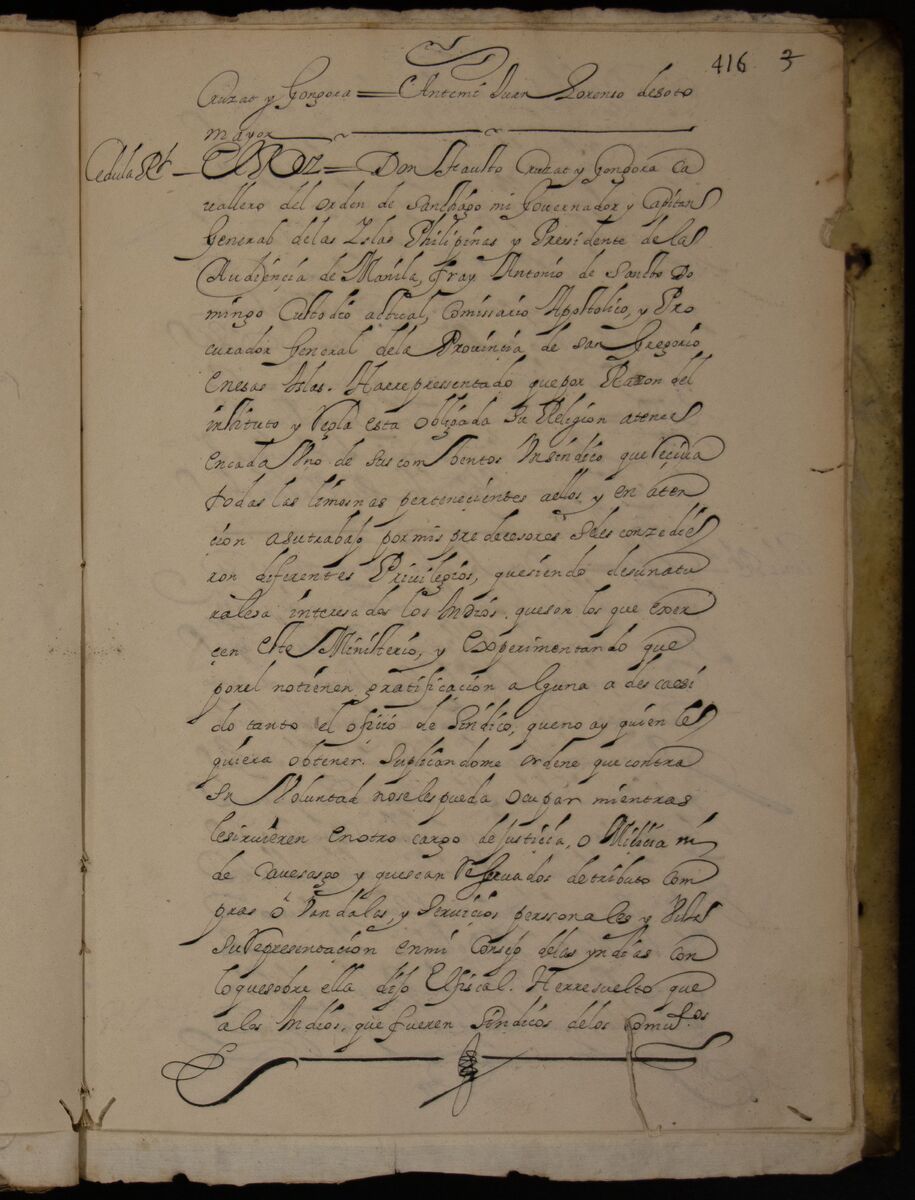 416 3
Cruzat y Gongora = Antemi Juan Lorenso desoto
mayor
Cedula Rl. - El Rey = Don Fausto Cruzat y Gongora Ca
vallero del orden de Santhiago mi Governador y Capitan
General delas Yslas Philipinas y Pressidente de la
Audiençia de Manila, fray Antonio de Sancto Do
mingo Custodio actual, Comissario Apostolico, y Pro
curador General dela Provinçia de San Gregorio
enesas Yslas. Harrepressentado que por Razon del
instituto y Regla esta obligada Su Religion atener
encada Uno de Sus comUentos Unsindico que reciua
todas las limosnas perteneçientes aellos, y en aten
çion asutrabajo por mis predecesores Seles conzedie
ron diferentes Privilegios, quesiendo desunatu
ralesa interesados los Yndios. queson los que exer
çen este Ministerio, y experimentando que
porel notienen gratificaçion alguna a descaesi
do tanto el ofiçio de Sindico, queno ay quien le
quiera obtener. Suplicandome ordene que contra
Su Voluntad noseles pueda ocupar mientras
lesiruieren en otro cargo de justicia, o Miliçia ni
de Cauesasgo y quesean Reseruados de tributo com
pras ó Vandalas, y Serviçios perssonales y Vista
Su Representaçion enmi Consejo delas yndias con
loquesobre ella dijo El fiscal. Herresuelto que
alos Yndios, que fueren Sindicos delos Comutos